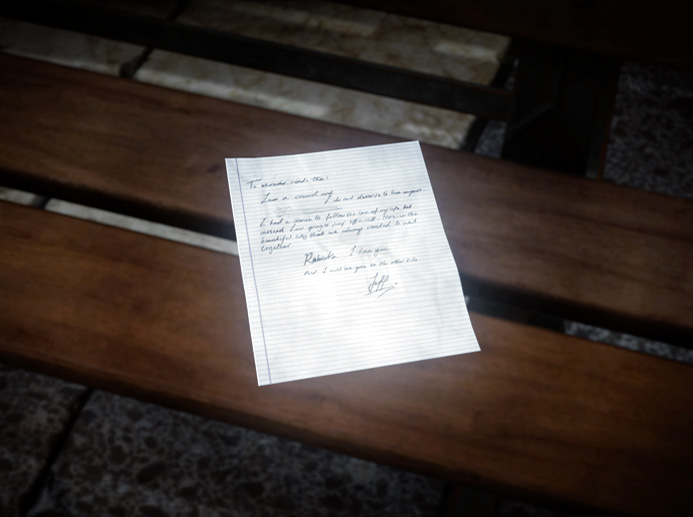 To whoever reads this:
I am a coward, and I do not deserve to live anymore.
I had a chance to follow the love of my life but
I am going to jump off a cliff, here in the
beautiful city that we always wanted to visit
together.
Roberta I love you
And I will see you in the other life
Jeff